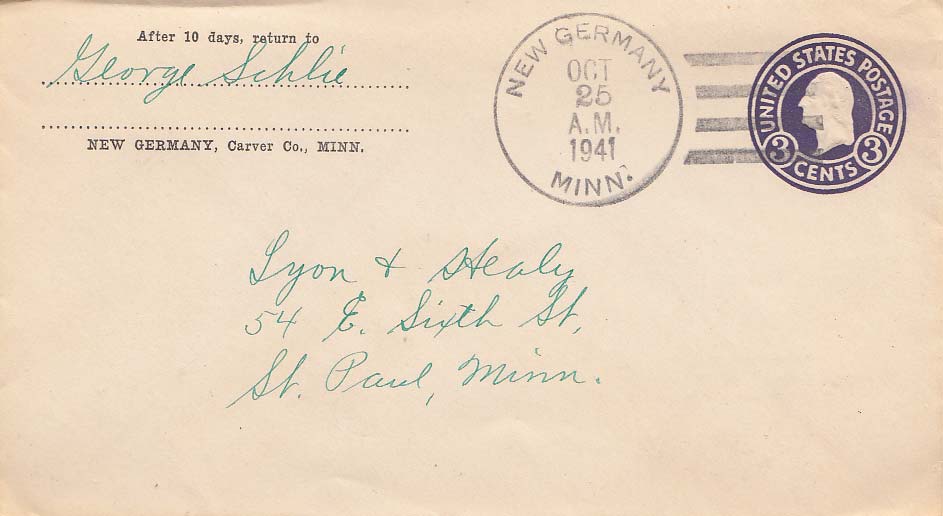 After 10 days, return to
George Schlie
NEW GERMANY, Carver Co., MINN.
NEW GERMANY
OCT
25
A.M.
1941
MINN.
UNITED STATES POSTAGE
3 CENTS 3
Lyon & Healy
54 E. Sixth St,
St. Paul, Minn.